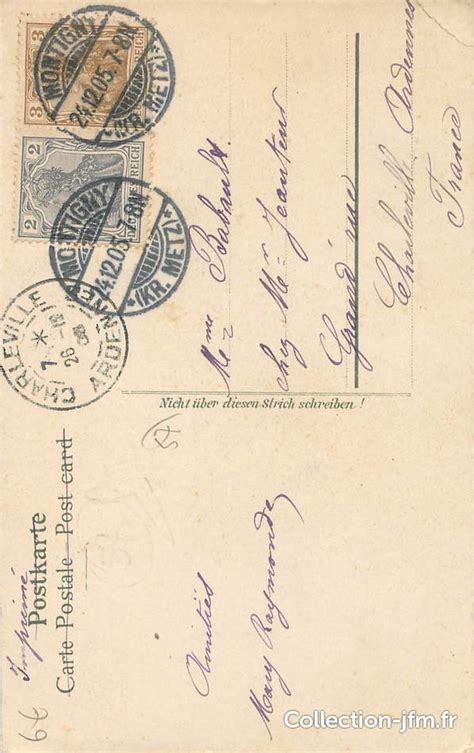 Imprimé
Postkarte
Carte Postale - Post card
MONTIGNY
24.12.05.7-8N
*(KR. METZ)*
3 3
REICH
MONTIGNY
24.12.05.7-8N
*(KR. METZ)*
2 2
REICH
CHARLEVILLE
7 *
26
ARDENNES
Mme
chez Mr Jeanteur
Grand'rue
Charleville Ardennes
France
Nicht über diesen Strich schreiben!
57
Amitiés
Mary Raymonde
Collection-jfm.fr